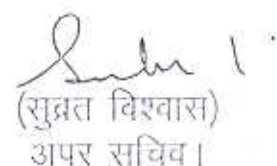 (सुब्रत विश्वास)
अपर सचिव।